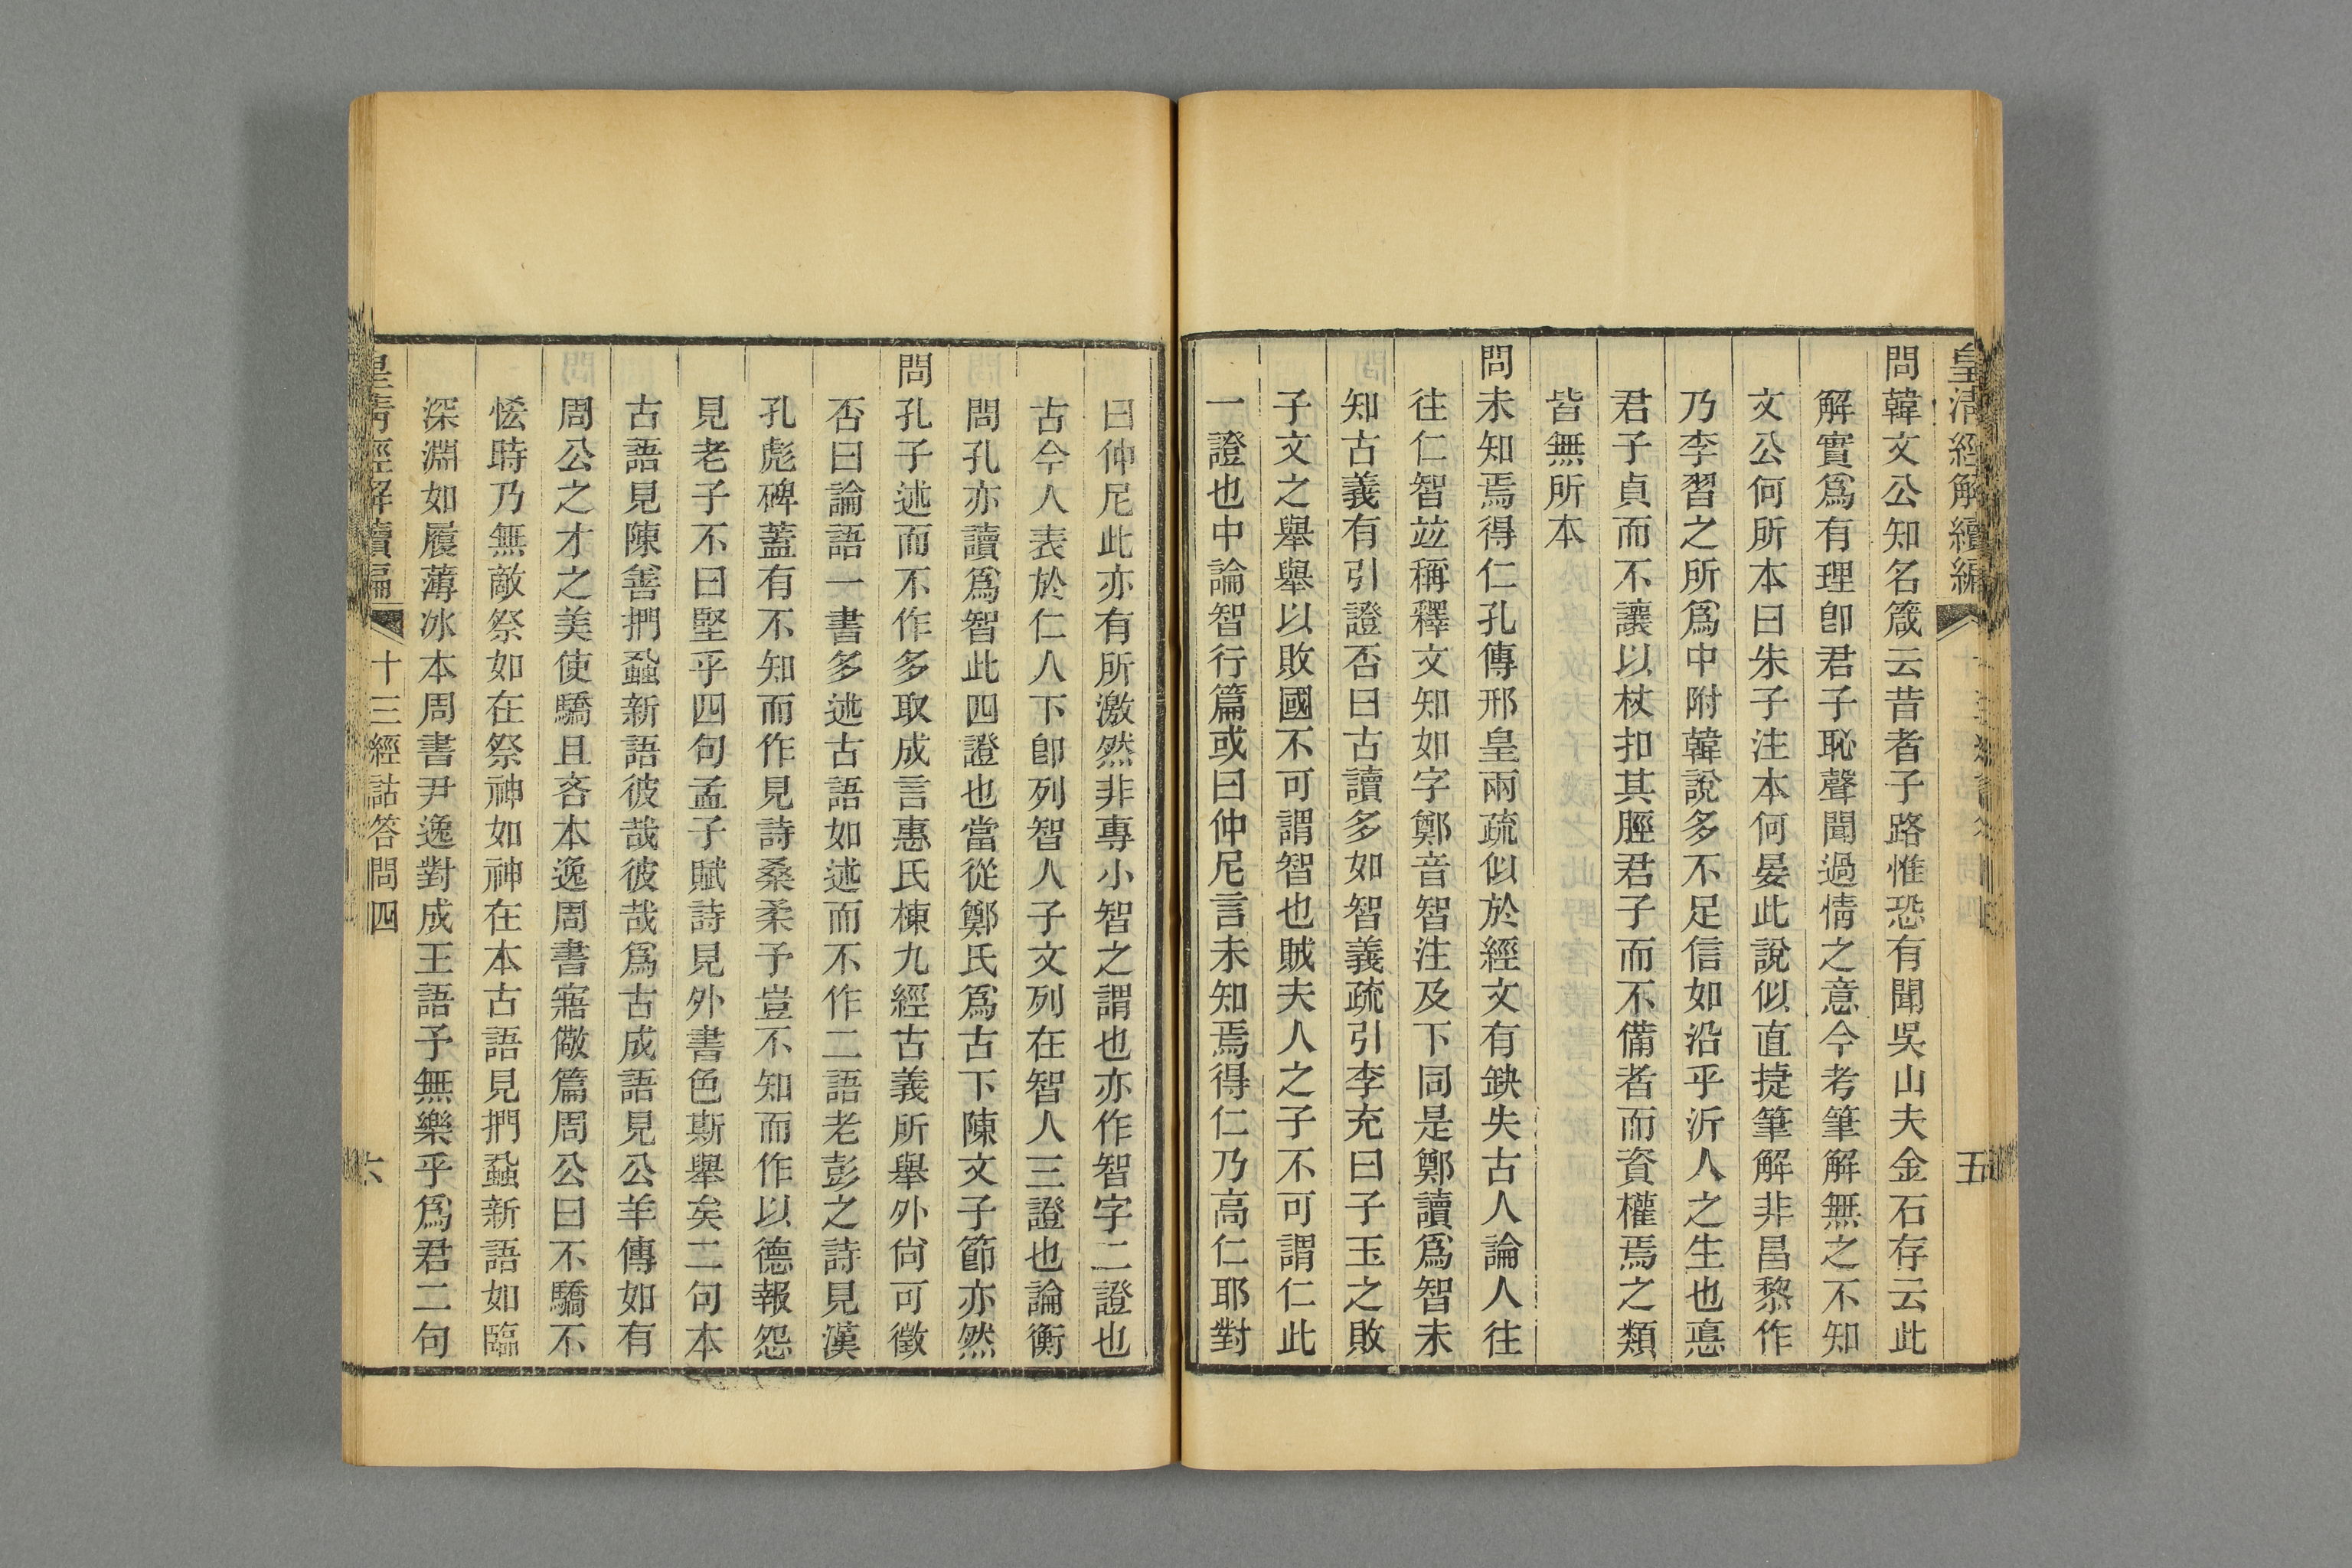 皇清經解續編 五
問韓文公知名箴云昔者子路惟恐有聞吳山夫金石存云此
解實爲有理卽君子恥聲聞過情之意今考筆解無之不知
文公何所本曰朱子注本何晏此說似直捷筆解非昌黎作
乃李習之所爲中附韓說多不足信如沿乎沂人之生也悳
君子貞而不讓以杖扣其脛君子而不備者而資權焉之類
皆無所本
問未知焉得仁孔傳邢皇兩疏似於經文有缺失古人論人往
往仁智竝稱釋文知如字鄭音智注及下同是鄭讀爲智未
知古義有引證否曰古讀多如智義疏引李充曰子玉之敗
子文之舉舉以敗國不可謂智也賊夫人之子不可謂仁此
一證也中論智行篇或曰仲尼言未知焉得仁乃高仁耶對
曰仲尼此亦有所激然非專小智之謂也亦作智字二證也
古今人表於仁人下卽列智人子文列在智人三證也論衡
問孔亦讀爲智此四證也當從鄭氏爲古下陳文子節亦然
問孔子述而不作多取成言惠氏棟九經古義所舉外尙可徵
否曰論語一書多述古語如述而不作二語老彭之詩見漢
孔彪碑蓋有不知而作見詩桑柔予豈不知而作以德報怨
見老子不曰堅乎四句孟子賦詩見外書色斯舉矣二句本
古語見陳善捫蝨新語彼哉彼哉爲古成語見公羊傳如有
周公之才之美使驕且吝本逸周書寤儆篇周公曰不驕不
恡時乃無敵祭如在祭神如神在本古語見捫蝨新語如臨
深淵如履薄冰本周書尹逸對成王語予無樂乎爲君二句
皇清經解續編 十三經詁答問四 六